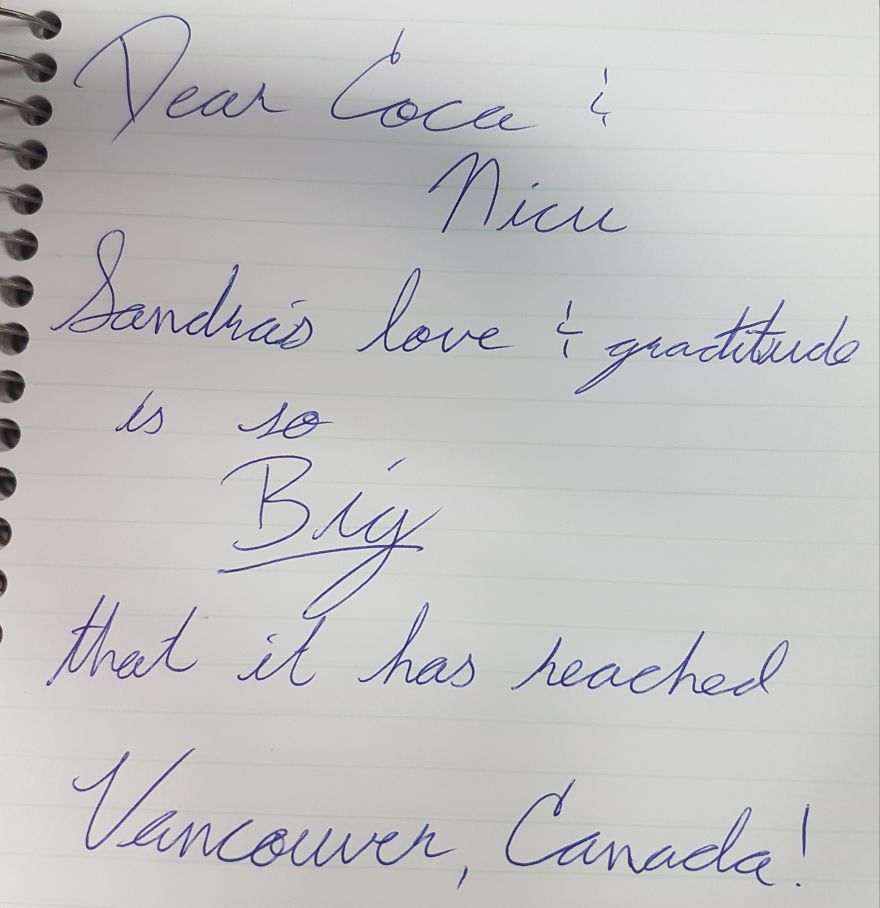 Dear Coca &
Nicu
Sandra's love & gratitude
is so
Big
that it has reached
Vancouver, Canada!